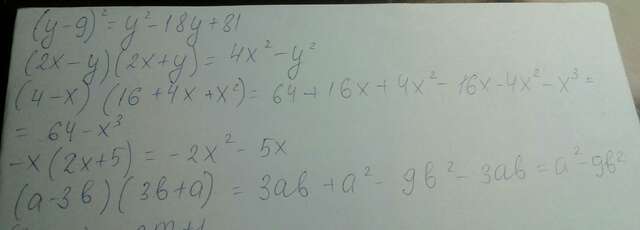 (y-9)² = y² - 18y + 81
(2x-y)(2x+y) = 4x² - y²
(4-x)(16+4x+x²) = 64+16x+4x²-16x-4x²-x³ =
= 64-x³
-x(2x+5) = -2x² - 5x
(a-3b)(3b+a) = 3ab+a²-9b²-3ab = a²-9b²